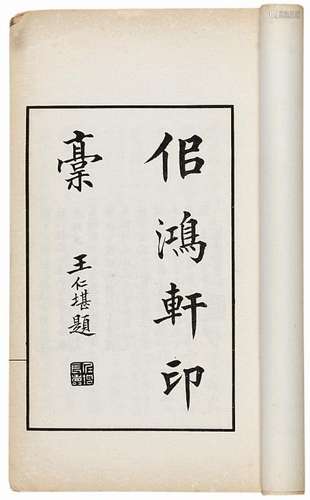 佀鴻軒印
稾
王仁堪題